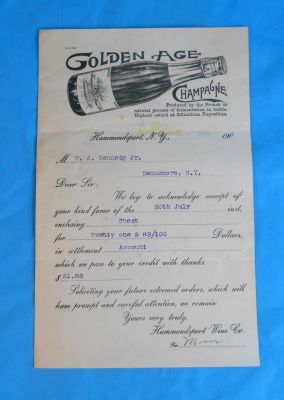 GOLDEN AGE
CHAMPAGNE
Produced by the French or
natural process of fermentation in bottle.
Highest award at Columbian Exposition.
Hammondsport, N.Y., 190
M D. J. Kennedy Jr.
Dannemora, N.Y.
Dear Sir:
We beg to acknowledge receipt of
your kind favor of the 20th July inst,
enclosing Check
for Twenty one & 83/100 Dollars,
in settlement Account
which we pass to your credit with thanks.
$ 21.83
Soliciting your future esteemed orders, which will
have prompt and careful attention, we remain
Yours very truly,
Hammondsport Wine Co.
Per